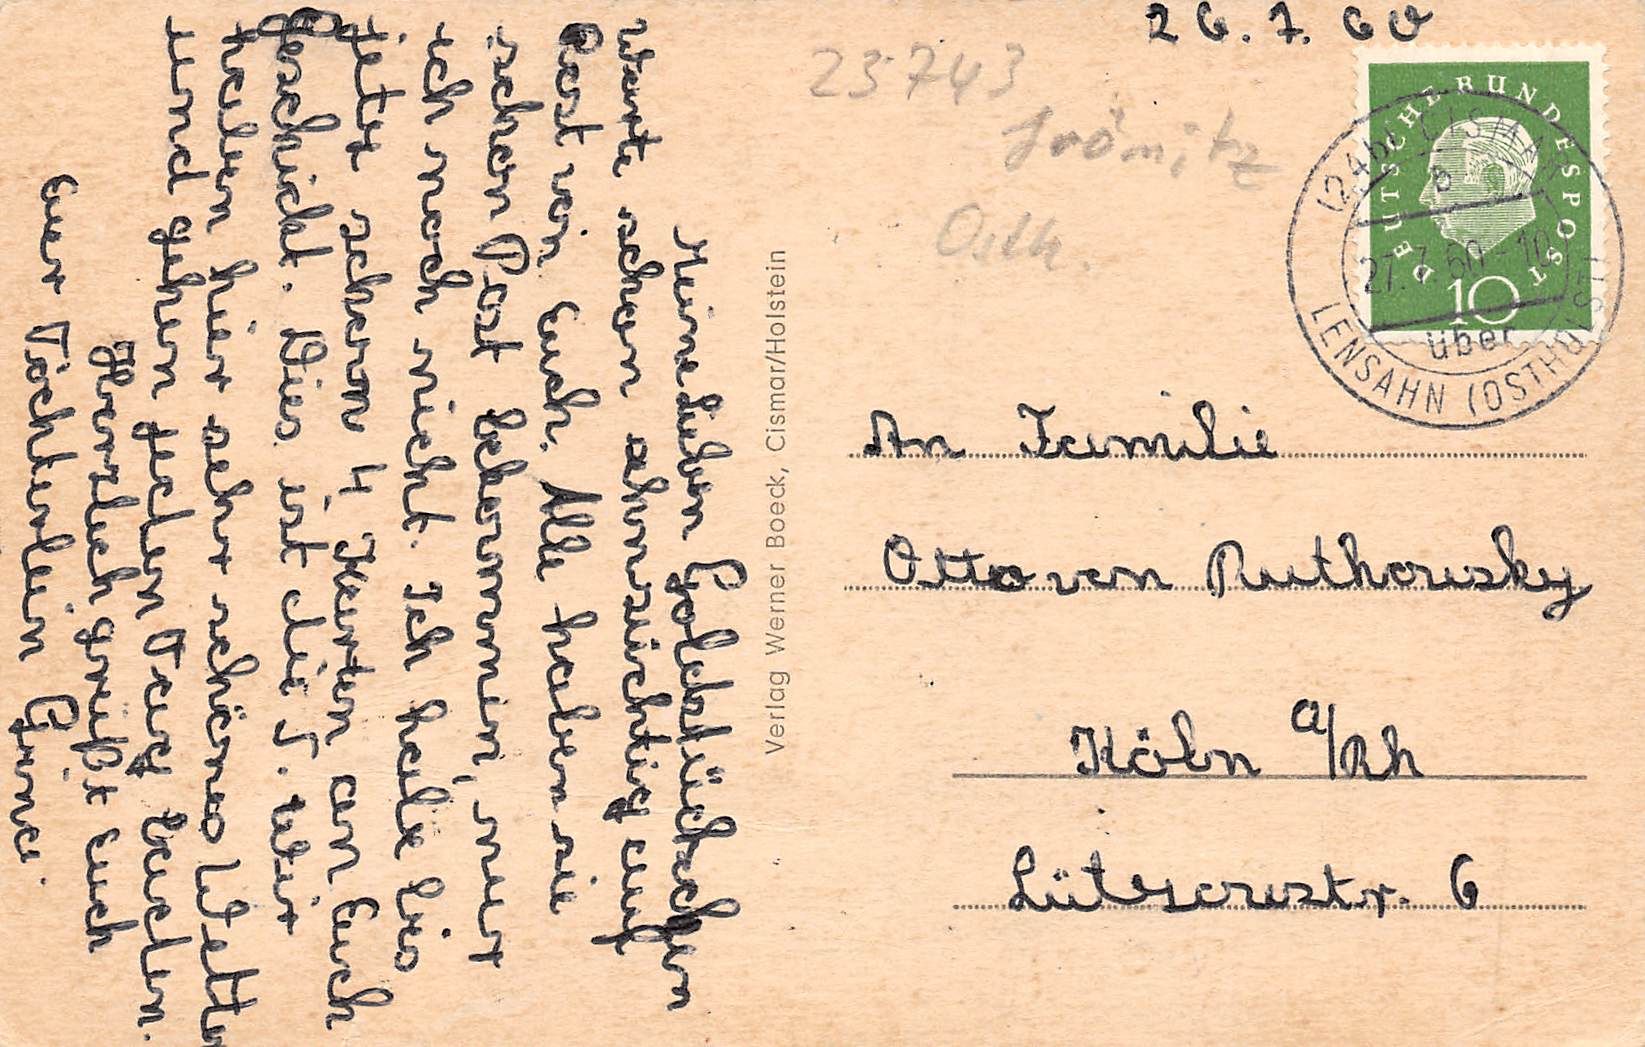 26.7.60
23743
Grömitz
Osth.
DEUTSCHE BUNDESPOST
10
(24b) CISMAR
27.7.60-10
über
LENSAHN (OSTHOLST)
Meine lieben Goldstückchen
Warte schon sehnsüchtig auf
Post von Euch. Alle haben sie
schon Post bekommen, nur
ich noch nicht. Ich habe bis
jetzt schon 4 Karten an Euch
geschickt. Dies ist die 5. Wir
haben hier sehr schönes Wetter
und gehen jeden Tag baden.
Herzlich grüßt Euch
Euer Töchterlein
Verlag Werner Boeck, Cismar/Holstein
An Familie
Otto von Ruthowsky
Köln a/Rh
Lützowstr. 6